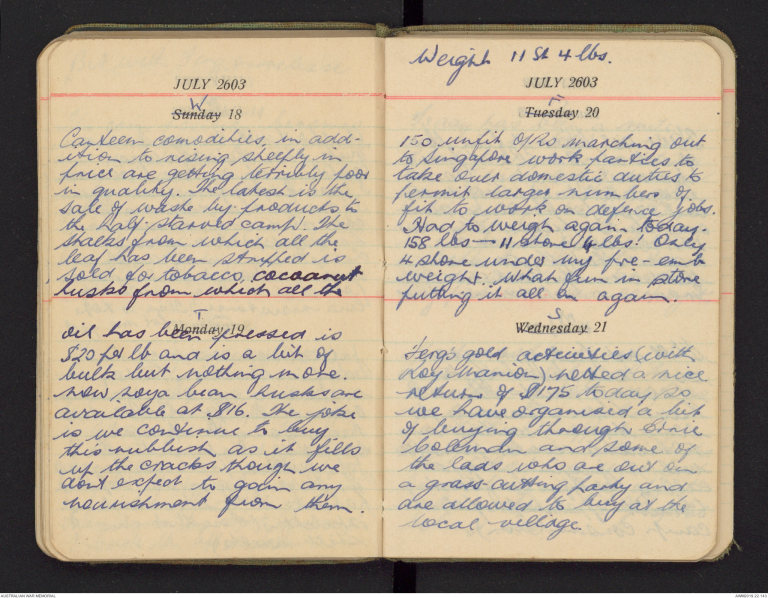 JULY 2603
W
Sunday 18
Canteen comodities, in add-
ition to rising shelfly in
price are getting terribly poor
in quality. The latest is the
sale of waste by-products to
the half-starved camp. The
stalks from which all the
leaf has been stripped is
sold for tobacco, cocoanut
husks from which all the
T
Monday 19
oil has been pressed is
$20 per lb and is a bit of
bulk but nothing more.
now soya bean husks are
available at $16. The joke
is we continue to buy
this rubbish as it fills
up the cracks though we
dont expect to gain any
nourishment from them.
Weight 11 St 4 lbs.
JULY 2603
F
Tuesday 20
150 unfit O/Rs marching out
to Singapore work parties to
take over domestic duties to
permit larger numbers of
fit to work on defence jobs.
Had to weigh again today.
158 lbs — 11 stone 4 lbs! Only
4 stone under my pre-
weight. What fun in store
putting it all on again.
S
Wednesday 21
Ferg's gold activities (with
Roy Marion) netted a nice
return of $175 today so
we have organised a bit
of buying through Ernie
Coleman and some of
the lads who are out on
a grass-cutting party and
are allowed to buy at the
local village.
AUSTRALIAN WAR MEMORIAL